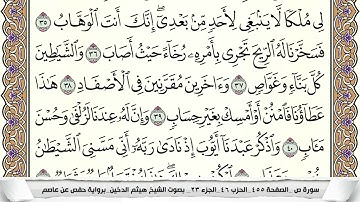 لِى مُلْكًا لَّا يَنۢبَغِى لِأَحَدٍ مِّنۢ بَعْدِىٓ إِنَّكَ أَنتَ ٱلْوَهَّابُ ٣٥
فَسَخَّرْنَا لَهُ ٱلرِّيحَ تَجْرِى بِأَمْرِهِۦ رُخَآءً حَيْثُ أَصَابَ ٣٦ وَٱلشَّيَٰطِينَ
كُلَّ بَنَّآءٍ وَغَوَّاصٍ ٣٧ وَءَاخَرِينَ مُقَرَّنِينَ فِى ٱلْأَصْفَادِ ٣٨ هَٰذَا
عَطَآؤُنَا فَٱمْنُنْ أَوْ أَمْسِكْ بِغَيْرِ حِسَابٍ ٣٩ وَإِنَّ لَهُۥ عِندَنَا لَزُلْفَىٰ وَحُسْنَ
مَـَٔابٍ ٤٠ وَٱذْكُرْ عَبْدَنَآ أَيُّوبَ إِذْ نَادَىٰ رَبَّهُۥٓ أَنِّى مَسَّنِىَ ٱلشَّيْطَٰنُ
سورة ص _ الصفحة ٤٥٥ _ الحزب ٤٦ _ الجزء ٢٣ _ بصوت الشيخ هيثم الدخين _ برواية حفص عن عاصم